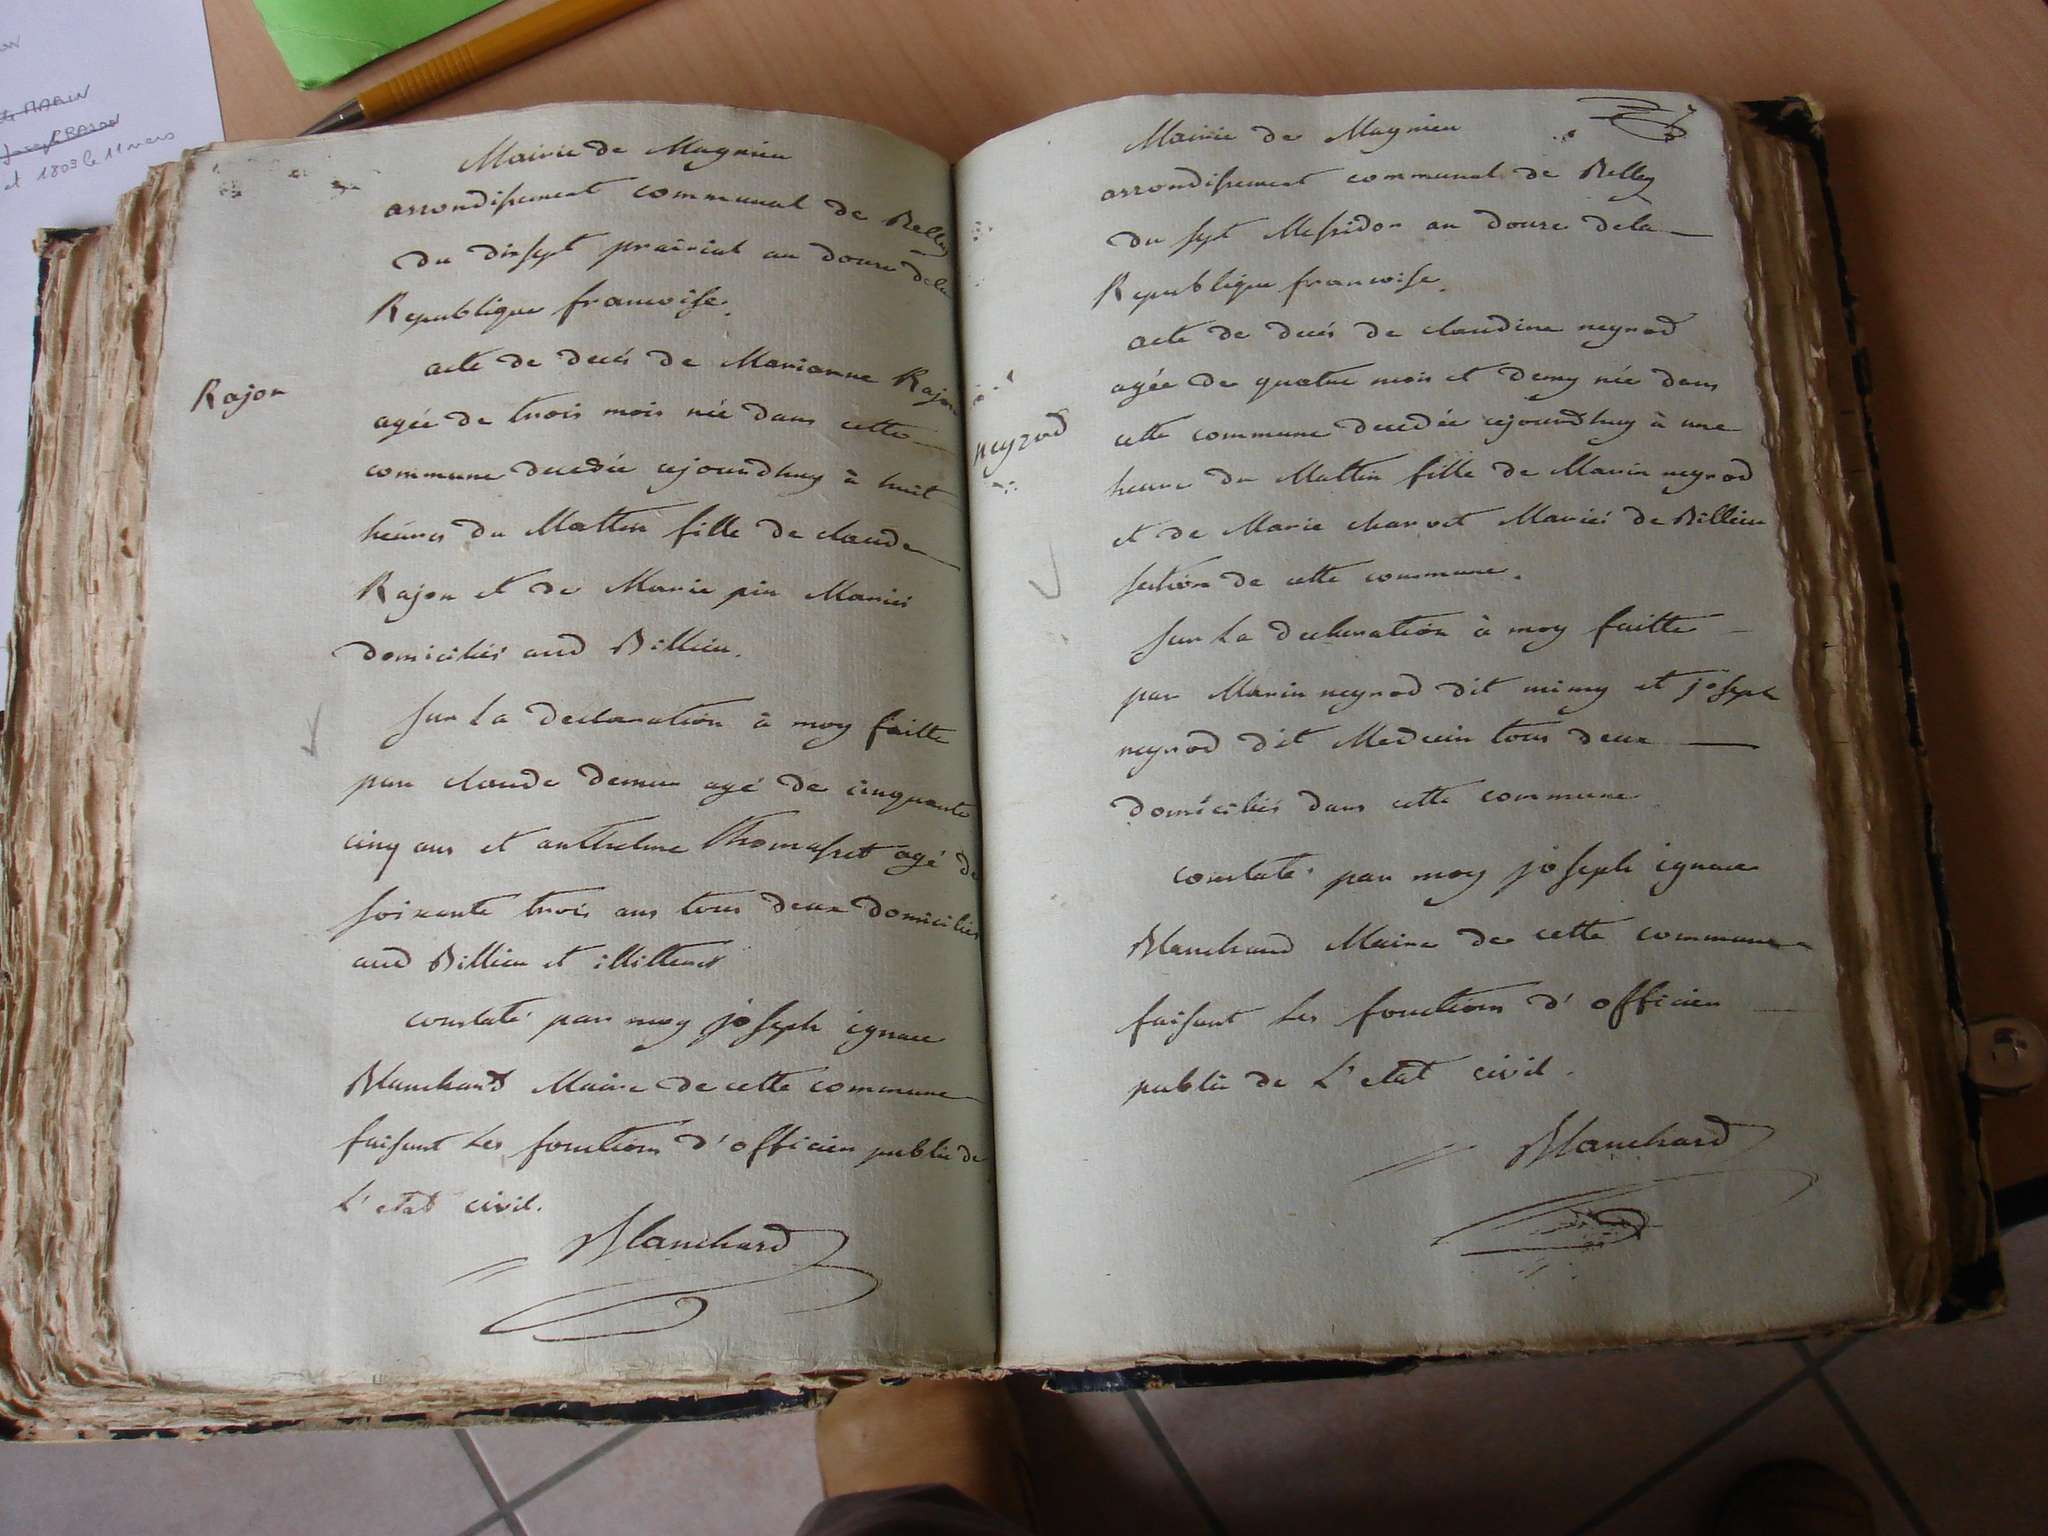 MARIN
Joseph RAJON
et 1803 le 11 mars
Mairie de Magnieu
arrondissement communal de Belley
du dixsept prairial an douze dela
Republique francoise.
Rajon
acte de decés de Marianne Rajon
agée de trois mois née dans cette
commune decedée cejourdhuy à huit
heures du Mattin fille de claude
Rajon et de Marie pin Mariés
domiciliés aud Billieu.
sur La declaration à moy faitte
par claude demeur agé de cinquante
cinq ans et anthelme Thomasset agé de
soixante trois ans tous deux domiciliés
aud Billieu et illitterés
constaté par moy joseph ignace
Blanchard Maire de cette commune
faisant Les fonctions d'officier public de
L'etat civil.
Blanchard
Mairie de Magnieu
arrondissement communal de Belley
du sept Messidor an douze dela
Republique francoise.
neyrod
acte de decés de claudine neyrod
agée de quatre mois et demy née dans
cette commune decedée cejourdhuy à une
heure du Mattin fille de Marin neyrod
et de Marie charvet Mariés de Billieu
section de cette commune.
sur La declaration à moy faitte
par Marin neyrod dit mimy et joseph
neyrod dit Medecin tous deux
domiciliés dans cette commune
constaté par moy joseph ignace
Blanchard Maire de cette commune
faisant Les fonctions d'officier
public de L'etat civil.
Blanchard